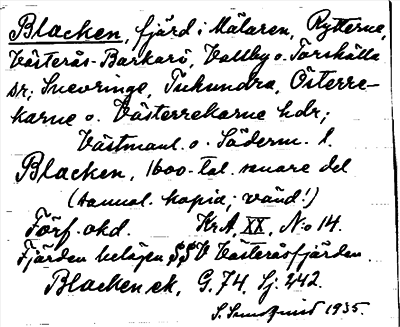 Blacken, fjärd i Mälaren, Rytterne,
Västerås-Barkarö, Vallby o. Torshälla
sr; Snevringe, Tuhundra, Österre-
karne o. Västerrekarne hdr;
Västmanl. o. Söderm. l.
Blacken, 1600-tal. senare del
(samml. kopia; vänd!)
Förf. okd. KrA, XX, N:o 14.
Fjärden belägen SSV Västeråsfjärden.
Blacken ek, G. 74, Sj: 242.
S. 1935.